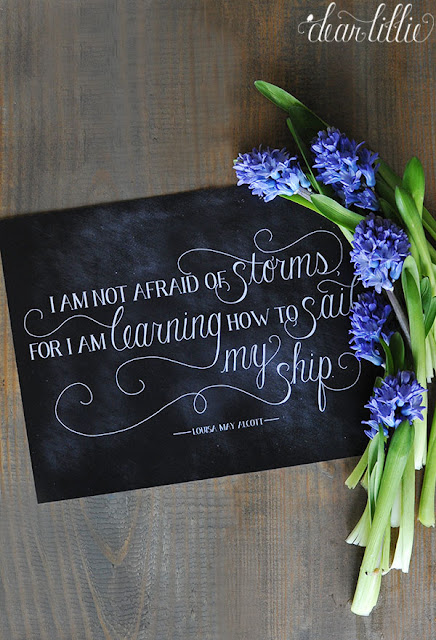 dear lillie
I AM NOT AFRAID OF storms,
FOR I AM learning HOW TO sail
my ship.
— LOUISA MAY ALCOTT —